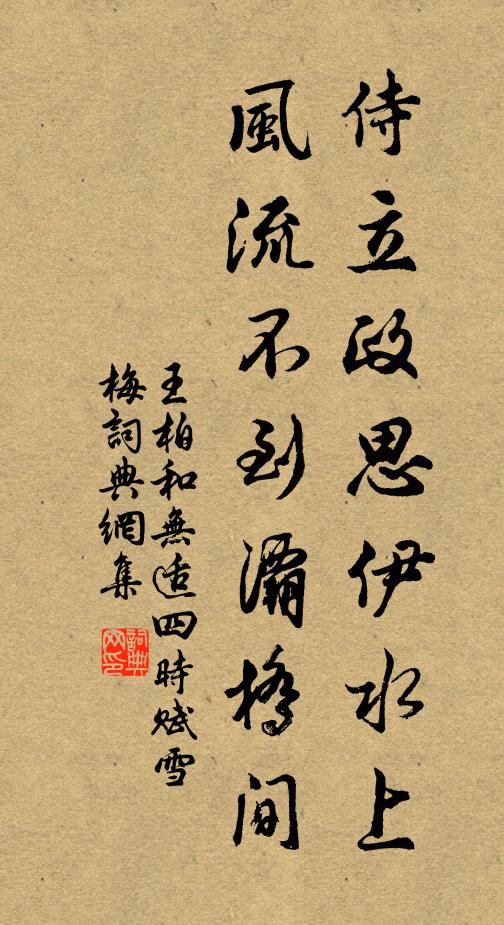 侍立政思伊水上
風流不到灞橋間
王柏和無適四時賦雪
梅詞典網集
詞典
网印